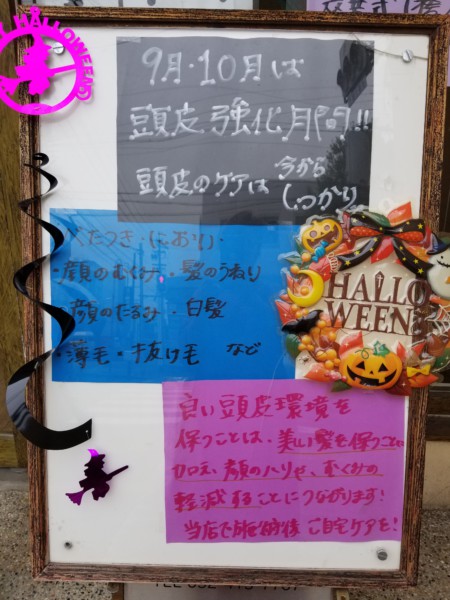 HALLOWEEN
9月・10月は
頭皮強化月間!!
頭皮のケアは 今から
しっかり
べたつき・におい・
・顔のむくみ・髪のうねり
顔のたるみ・白髪
・薄毛・抜け毛 など
HALLO
WEEN
良い頭皮環境を
保つことは、美しい髪を保つことに
加え、顔のハリや、むくみの
軽減することにつながります!
当店で施術後 ご自宅ケアを!